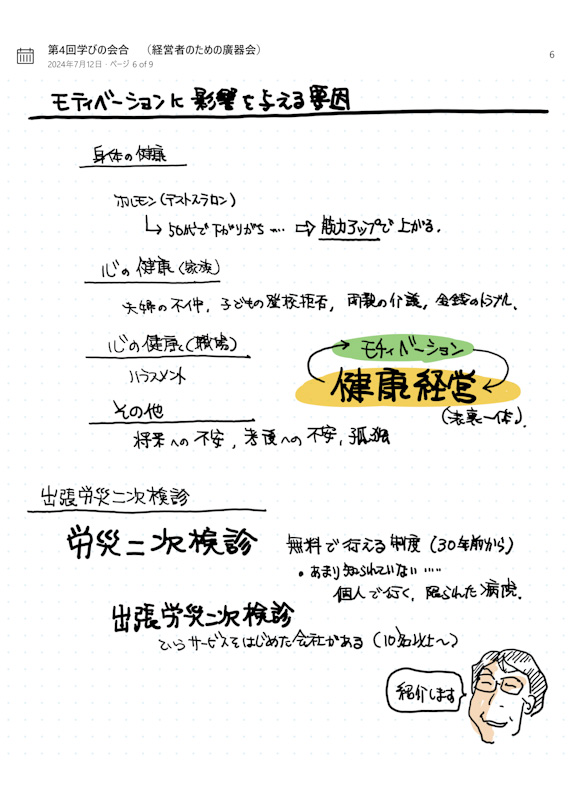 第4回学びの会合　（経営者のための廣器会）
2024年7月12日・ページ 6 of 9
6
モティベーションに影響を与える要因
身体の健康
ホルモン（テストステロン）
↳ 50代で下がりがち… ⇨ 筋力アップで上がる。
心の健康（家族）
夫婦の不仲，子どもの登校拒否，両親の介護，金銭のトラブル、
心の健康（職場）
ハラスメント
モティベーション
健康経営
（表裏一体）。
その他
将来への不安，老後への不安，孤独
出張労災二次検診
労災二次検診
無料で行える制度（30年前から）
・あまり知られていない……
個人で行く，限られた病院．
出張労災二次検診
というサービスをはじめた会社がある（10名以上〜）
紹介します